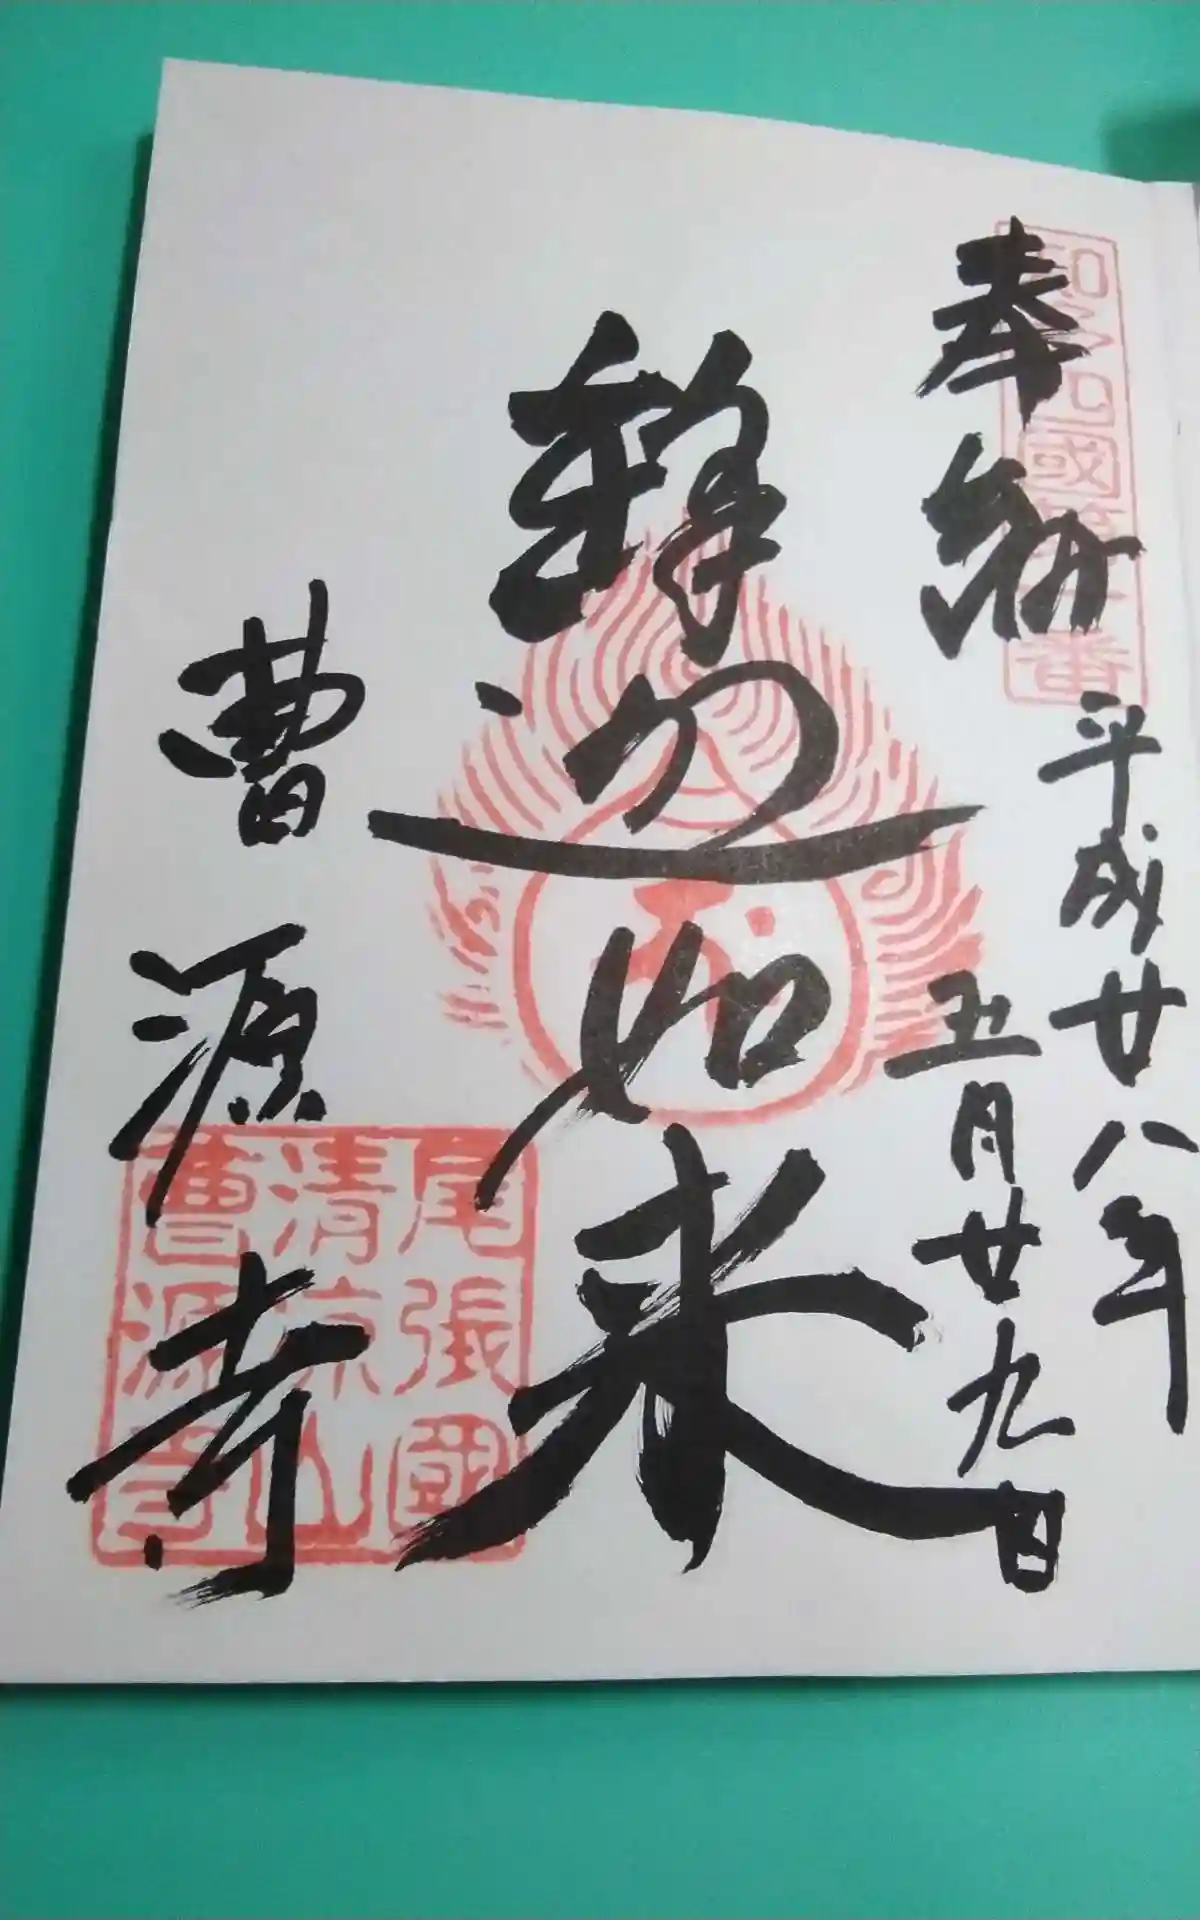 奉納
知多四國第一番
平成廿八年
五月廿九日
釋迦如来
曹源寺
尾張國
清涼山
曹源寺